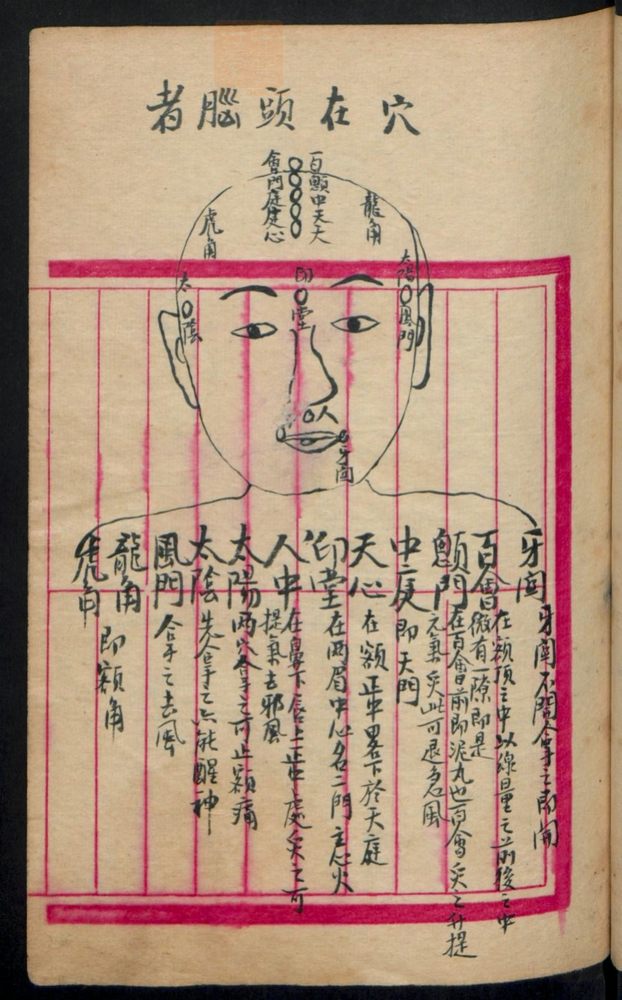 穴在頭腦者
百顖中天天
會門庭庭心
龍角
虎角
太陽
風門
太陰
印堂
人
牙関
牙関 牙関不開拿之即開
百會 在額頂之中以線量之前後之中
微有一隙即是
顖門 在百會前即泥丸也百會灸之升提
元氣灸此可退急風
中庭 即天門
天心 在額正中畧下於天庭
印堂 在两眉中心名二門主心火
人中 在鼻下唇上正處灸之可
提氣去邪風
太陽 两穴拿之可止額痛
太陰 先拿之只能醒神
風門 拿之去風
龍角
虎角 即額角